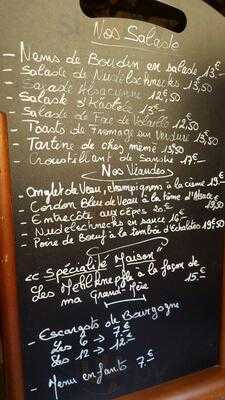 Nos Salades
- Nems de Boudin en salade 13.€
- Salade de Nudelschnecks 13,50
- Salade Alsacienne 12,50
- Salade 13.€
- Salade de Foie de Volaille 12,50
- Toasts de Fromage sur Verdure 13,50
- Tartine de chez mémé 13.50
- Croustillant de 17.€
Nos Viandes
- Onglet de Veau, champignons à la crème 19.€
- Cordon Bleu de Veau à la tome d'Alsace
- Entrecôte aux cèpes 20.€
- Nudelschnecks en sauce 16.€
- Poire de Boeuf à la tombée d'échalottes 19,50
<< Spécialité Maison
Les Mehlknepfle à la façon de
ma Grand-Mère 15.€
- Escargots de Bourgogne
Les 6 → 7.€
Les 12 → 12.€
- Menu enfants 7.€